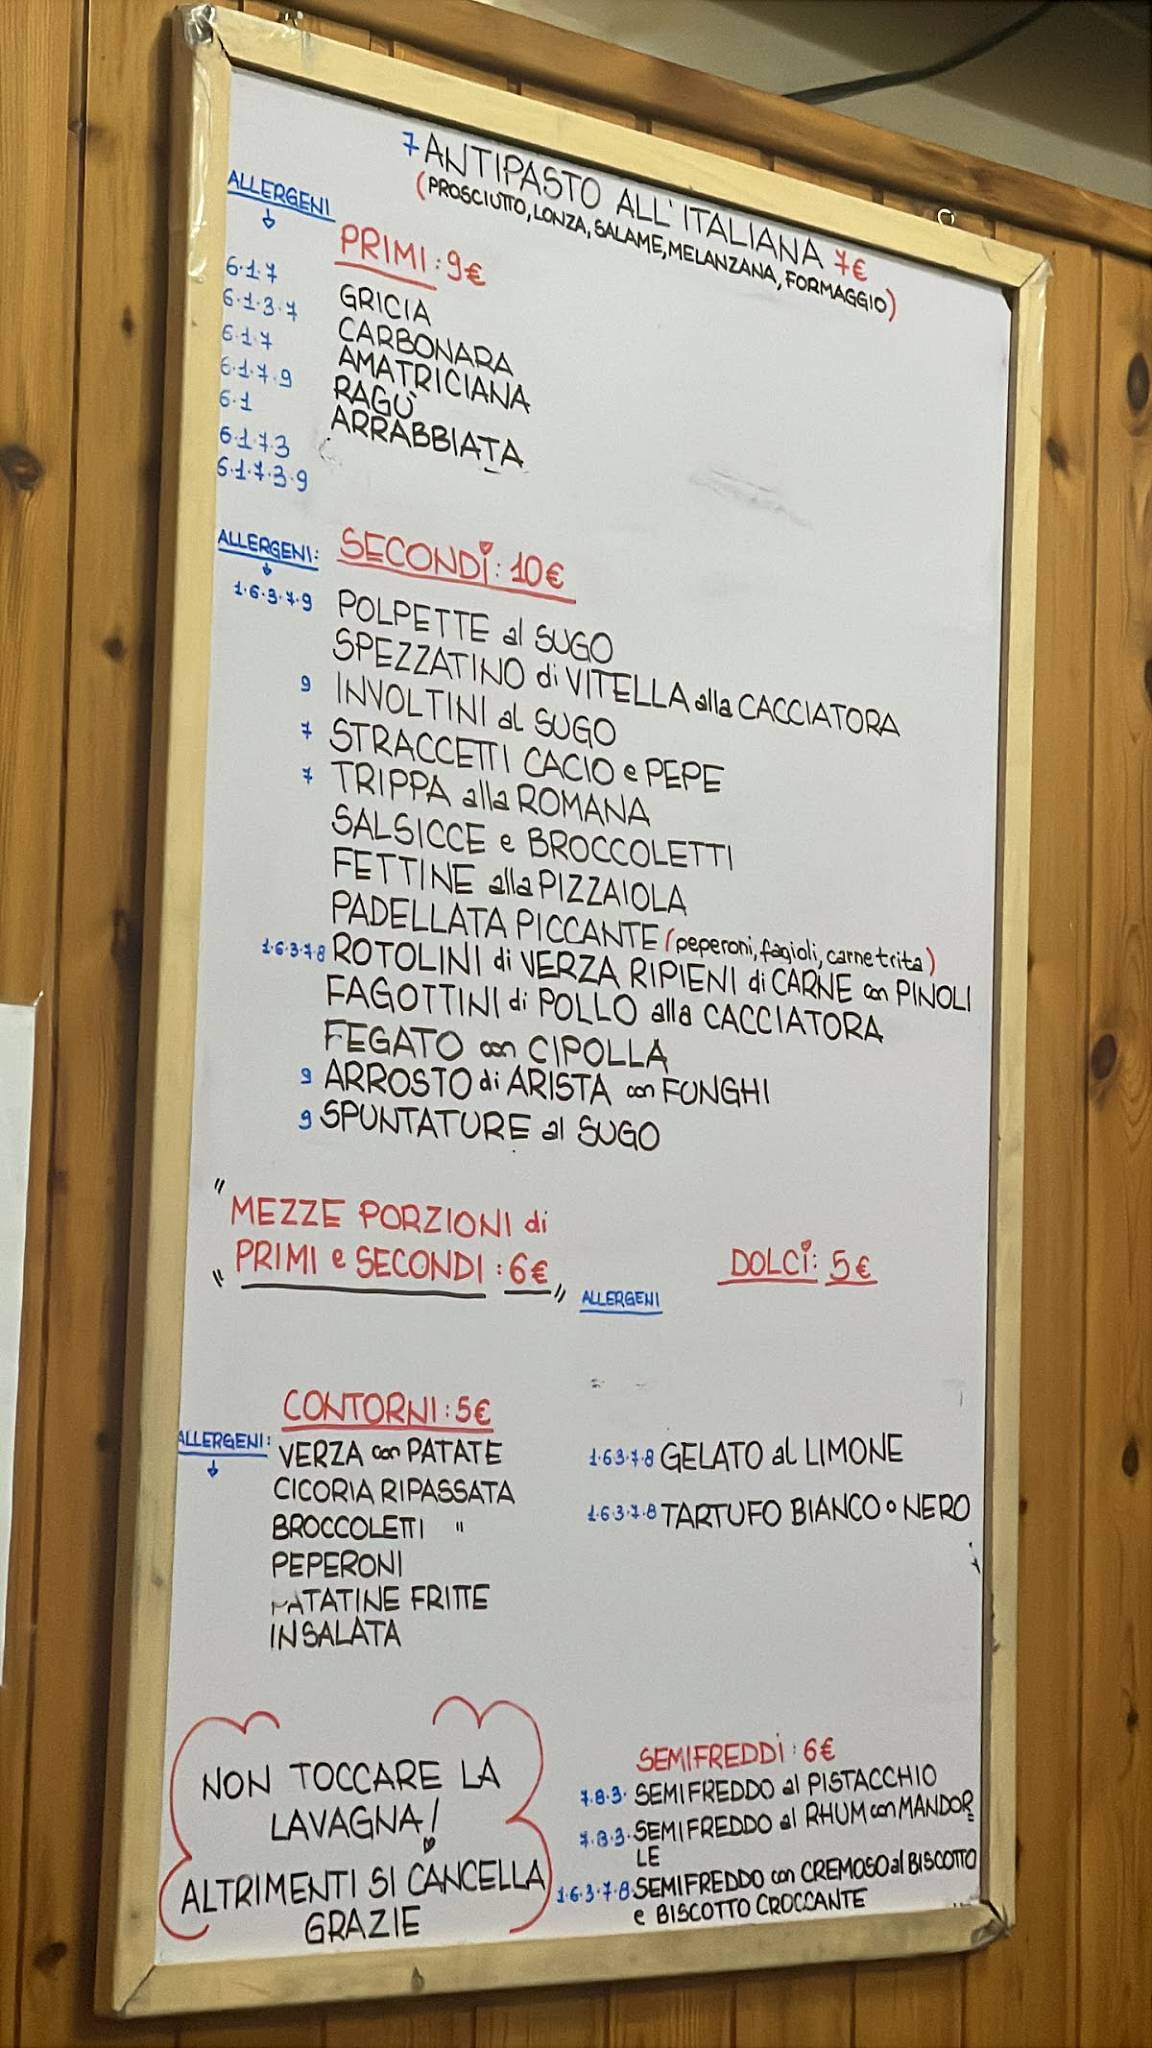 7 ANTIPASTO ALL'ITALIANA 7€
(PROSCIUTTO, LONZA, SALAME, MELANZANA, FORMAGGIO)
ALLERGENI
PRIMI: 9€
6.1.7 GRICIA
6.1.3.7 CARBONARA
6.1.7 AMATRICIANA
6.1.7.9 RAGÙ
6.1 ARRABBIATA
6.1.7.3
6.1.7.3.9
ALLERGENI: SECONDI: 10€
1.6.3.7.9 POLPETTE al SUGO
SPEZZATINO di VITELLA alla CACCIATORA
9 INVOLTINI al SUGO
7 STRACCETTI CACIO e PEPE
7 TRIPPA alla ROMANA
SALSICCE e BROCCOLETTI
FETTINE alla PIZZAIOLA
PADELLATA PICCANTE (peperoni, fagioli, carne trita)
1.6.3.7.8 ROTOLINI di VERZA RIPIENI di CARNE con PINOLI
FAGOTTINI di POLLO alla CACCIATORA
FEGATO con CIPOLLA
9 ARROSTO di ARISTA con FUNGHI
9 SPUNTATURE al SUGO
"MEZZE PORZIONI di
PRIMI e SECONDI: 6€"
CONTORNI: 5€
ALLERGENI: VERZA con PATATE
CICORIA RIPASSATA
BROCCOLETTI "
PEPERONI
PATATINE FRITTE
INSALATA
DOLCI: 5€
ALLERGENI
1.6.3.7.8 GELATO al LIMONE
1.6.3.7.8 TARTUFO BIANCO o NERO
NON TOCCARE LA
LAVAGNA!
ALTRIMENTI SI CANCELLA
GRAZIE
SEMIFREDDI: 6€
7.8.3. SEMIFREDDO al PISTACCHIO
7.8.3. SEMIFREDDO al RHUM con MANDOR
LE
1.6.3.7.8. SEMIFREDDO con CREMOSO al BISCOTTO
e BISCOTTO CROCCANTE